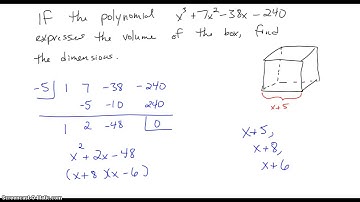 If the polynomial x³+7x²-38x-240
expresses the volume of the box, find
the dimensions.
x+5
-5 | 1 7 -38 -240
-5 -10 240
1 2 -48 0
x²+2x-48
(x+8)(x-6)
x+5,
x+8,
x+6
Screencast-O-Matic.com